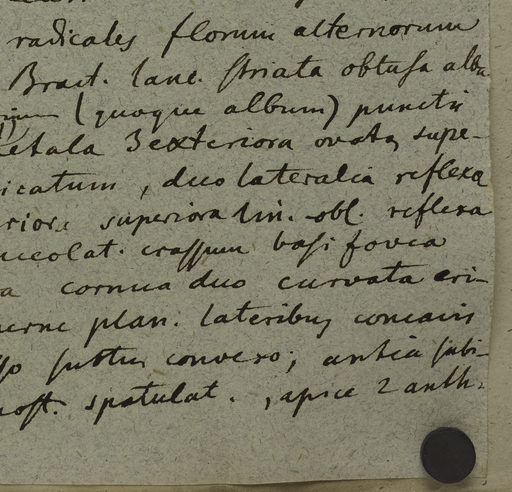 radicales florum alternorum
Bract. lanc. striata obtusa alba
(quoque album) punctis
petala 3 exteriora ovata, supe-
icatum, duo lateralia reflexa
riora superiora lin. obl. reflexa
ceolat. crassum basi fovea
a cornua duo curvata eri-
erne plan. lateribus concavis
subtus convexo; antica subi-
post. spatulat., apice 2 anth.